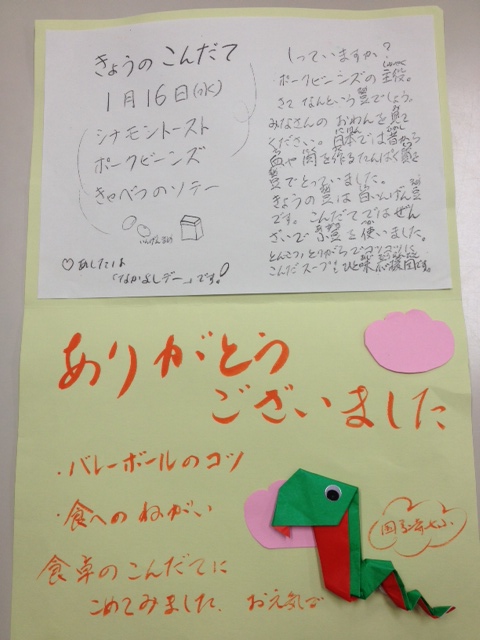 きょうの こんだて
1月16日(水)
シナモントースト
ポークビーンズ
きゃべつのソテー
いんげんまめ
♡あしたは
「なかよしデー」です!
しっていますか?
ポークビーンズの主役。
さて なんという豆でしょう。
みなさんの おわんを見て
ください。日本では昔から
血や肉を作るたんぱく質を
豆でとっていました。
きょうの豆は白いんげん豆
です。こんだてではぜん
ざいで 豆を使いました。
とんこつ,とりがらでコツコツに
こんだスープも です。
ありがとう
ございました
・バレーボールのコツ
・食へのねがい
食卓のこんだてに
こめてみました. お元気で